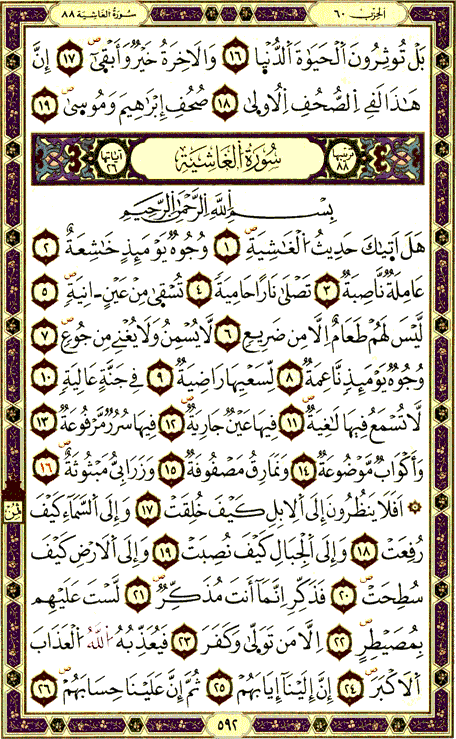 سُورَةُ الْغَاشِيَة ٨٨ الْحِزْبُ ٦٠
بَلْ تُوثِرُونَ الْحَيَوٰةَ الدُّنْيَا ١٦ وَالْاخِرَةُ خَيْرٌ وَأَبْقَىٰٓ ١٧ إِنَّ
هَـٰذَا لَفِے الصُّحُفِ الْاُولَىٰ ١٨ صُحُفِ إِبْرَٰهِيمَ وَمُوسَىٰ ١٩
ترتيبها ٨٨ سُورَةُ الْغَاشِيَة آياتها ٢٦
بِسْمِ اللَّهِ الرَّحْمَـٰنِ الرَّحِيمِ
هَلَ اَتَيٰكَ حَدِيثُ الْغَـٰشِيَةِ ١ وُجُوهٌ يَوْمَئِذٍ خَـٰشِعَةٌ ٢
عَامِلَةٌ نَّاصِبَةٌ ٣ تَصْلَىٰ نَارًا حَامِيَةً ٤ تُسْقَىٰ مِنْ عَيْنٍ ـاٰنِيَةٍ ٥
لَّيْسَ لَهُمْ طَعَامٌ اِلَّا مِن ضَرِيعٍ ٦ لَّا يُسْمِنُ وَلَا يُغْنِے مِن جُوعٍ ٧
وُجُوهٌ يَوْمَئِذٍ نَّاعِمَةٌ ٨ لِّسَعْيِهَا رَاضِيَةٌ ٩ فِے جَنَّةٍ عَالِيَةٍ ١٠
لَّا تُسْمَعُ فِيهَا لَـٰغِيَةٌ ١١ فِيهَا عَيْنٌ جَارِيَةٌ ١٢ فِيهَا سُرُرٌ مَّرْفُوعَةٌ ١٣
وَأَكْوَابٌ مَّوْضُوعَةٌ ١٤ وَنَمَارِقُ مَصْفُوفَةٌ ١٥ وَزَرَابِيُّ مَبْثُوثَةٌ ١٦
۞ اَفَلَا يَنظُرُونَ إِلَى الْاِبِلِ كَيْفَ خُلِقَتْ ١٧ وَإِلَى السَّمَآءِ كَيْفَ
رُفِعَتْ ١٨ وَإِلَى الْجِبَالِ كَيْفَ نُصِبَتْ ١٩ وَإِلَى الْاَرْضِ كَيْفَ
سُطِحَتْ ٢٠ فَذَكِّرِ اِنَّمَآ أَنتَ مُذَكِّرٌ ٢١ لَّسْتَ عَلَيْهِم
بِمُصَيْطِرٍ ٢٢ اِلَّا مَن تَوَلَّىٰ وَكَفَرَ ٢٣ فَيُعَذِّبُهُ اللَّهُ الْعَذَابَ
الْاَكْبَرَ ٢٤ إِنَّ إِلَيْنَآ إِيَابَهُمْ ٢٥ ثُمَّ إِنَّ عَلَيْنَا حِسَابَهُمْ ٢٦
٥٩٢